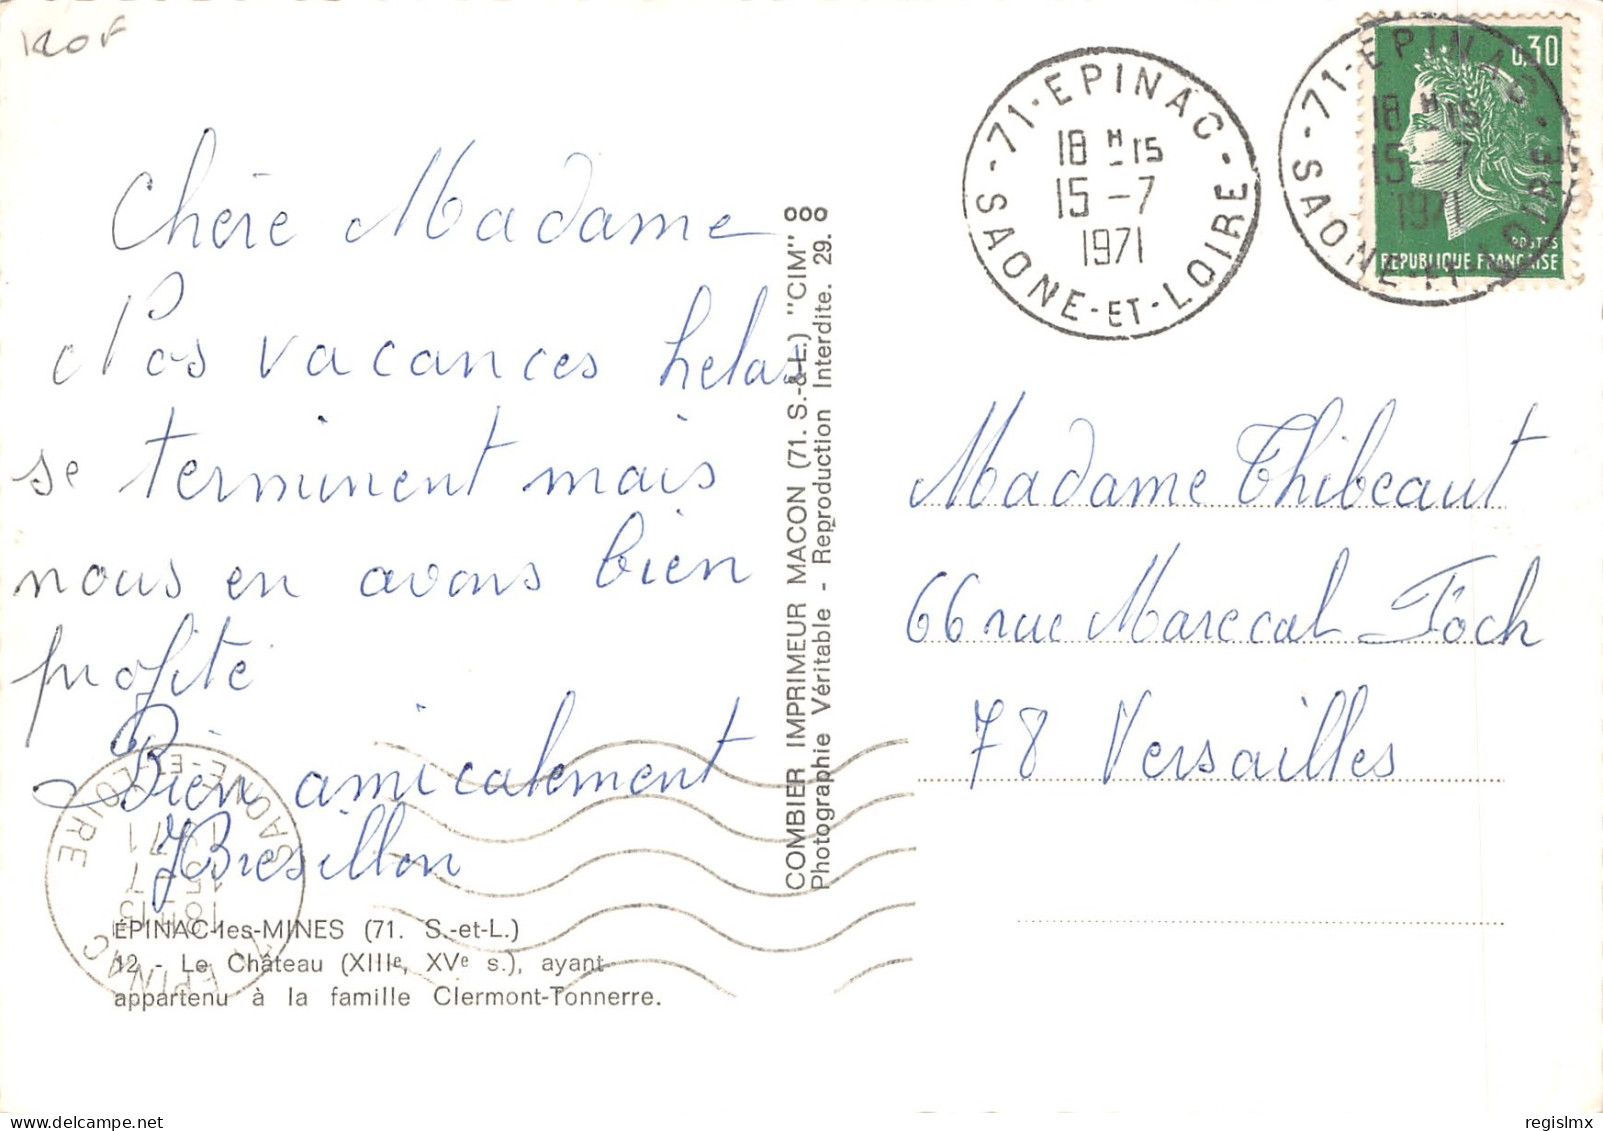 Chère Madame
Nos vacances helas
se terminent mais
nous en avons bien
profité
Bien amicalement
JBresillon
ÉPINAC-les-MINES (71. S.-et-L.)
12 - Le Château (XIIIe, XVe s.), ayant
appartenu à la famille Clermont-Tonnerre.
COMBIER IMPRIMEUR MACON (71. S.-&-L.) "CIM" ooo
Photographie Véritable - Reproduction Interdite. 29.
71 - EPINAC
18 H 15
15 -7
1971
SAONE-ET-LOIRE
71 - EPINAC
18 H 15
15 -7
1971
SAONE-ET-LOIRE
0,30
POSTES
REPUBLIQUE FRANÇAISE
Madame Thibeaut
66 rue Marecal Foch
78 Versailles
71 EPINAC
18 H 15
15 -7
1971
SAONE-ET-LOIRE
regislmx
delcampe.net